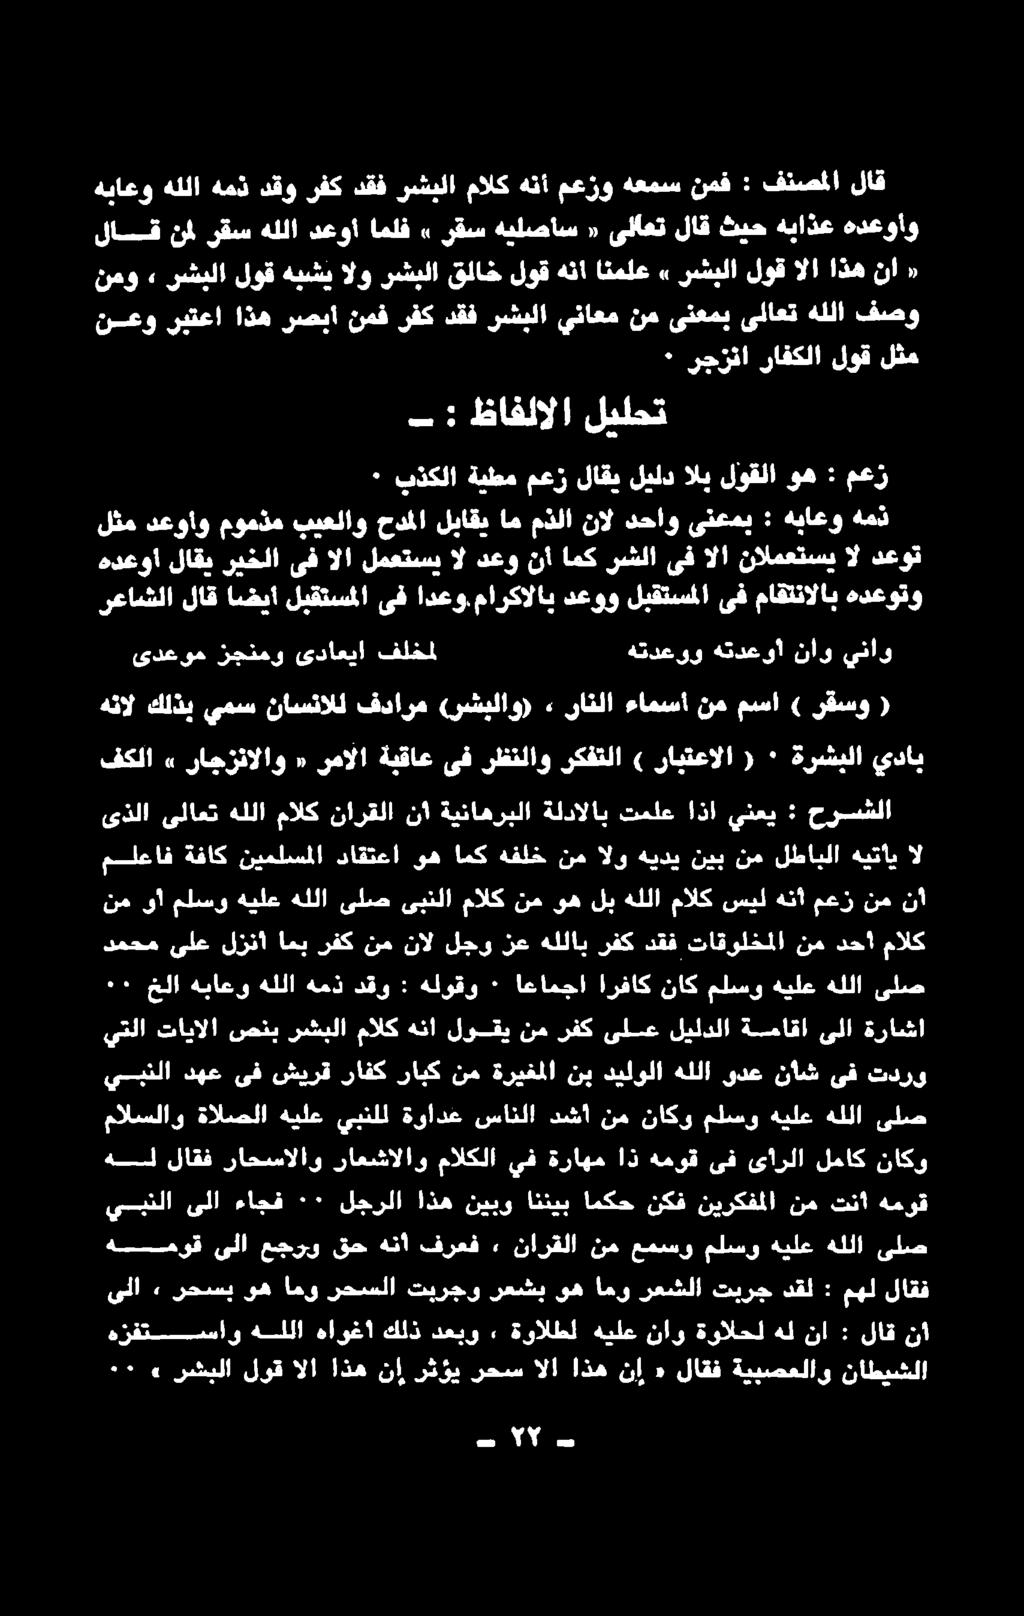 قال المصنف : فمن سمعه وزعم أنه كلام البشر فقد كفر وقد ذمه الله وعابه
وأوعده عذابه حيث قال تعالى « سأصليه سقر » فلما أوعد الله سقر لمن قــال
« ان هذا الا قول البشر » علمنا أنه قول خالق البشر ولا يشبه قول البشر ، ومن
وصف الله تعالى بمعنى من معاني البشر فقد كفر فمن أبصر هذا اعتبر وعــن
مثل قول الكفار انزجر •
تحليل الالفاظ : ـ
زعم : هو القول بلا دليل يقال زعم مطية الكذب •
ذمه وعابه : بمعنى واحد لان الذم ما يقابل المدح والعيب مذموم وأوعد مثل
توعد لا يستعملان الا فى الشر كما أن وعد لا يستعمل الا فى الخير يقال أوعده
وتوعده بالانتقام فى المستقبل ووعد بالاكرام.وعدا فى المستقبل أيضا قال الشاعر
واني وان أوعدته ووعدته لمخلف ايعادى ومنجز موعدى
( وسقر ) اسم من أسماء النار ، (والبشر) مرادف للانسان سمي بذلك لانه
بادي البشرة • ( الاعتبار ) التفكر والنظر فى عاقبة الامر « والانزجار » الكف
الشــرح : يعني اذا علمت بالادلة البرهانية أن القران كلام الله تعالى الذى
لا يأتيه الباطل من بين يديه ولا من خلفه كما هو اعتقاد المسلمين كافة فاعلــم
أن من زعم أنه ليس كلام الله بل هو من كلام النبى صلى الله عليه وسلم أو من
كلام أحد من المخلوقات فقد كفر بالله عز وجل لان من كفر بما أنزل على محمد
صلى الله عليه وسلم كان كافرا اجماعا • وقوله : وقد ذمه الله وعابه الخ • •
اشارة الى اقامــة الدليل علــى كفر من يقــول انه كلام البشر بنص الايات التي
وردت فى شأن عدو الله الوليد بن المغيرة من كبار كفار قريش فى عهد النبــي
صلى الله عليه وسلم وكان من أشد الناس عداوة للنبي عليه الصلاة والسلام
وكان كامل الرأى فى قومه ذا مهارة في الكلام والاشعار والاسحار فقال لــه
قومه أنت من المفكرين فكن حكما بيننا وبين هذا الرجل • • فجاء الى النبــي
صلى الله عليه وسلم وسمع من القران ، فعرف أنه حق ورجع الى قومــه
فقال لهم : لقد جربت الشعر وما هو بشعر وجربت السحر وما هو بسحر ، الى
أن قال : ان له لحلاوة وان عليه لطلاوة ، وبعد ذلك أغواه اللــه واســتفزه
الشيطان والعصبية فقال « إن هذا الا سحر يؤثر إن هذا الا قول البشر » • •
ـ ٢٢ ـ